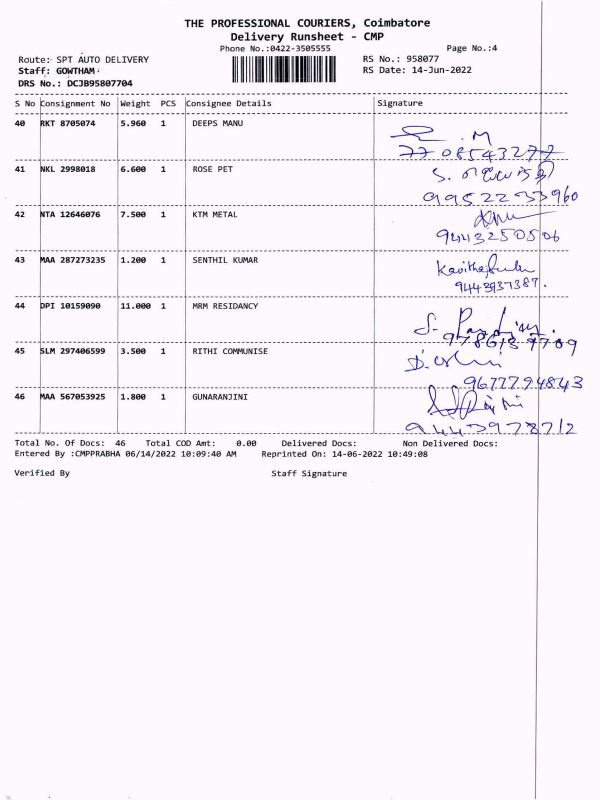 THE PROFESSIONAL COURIERS, Coimbatore
Delivery Runsheet - CMP
Phone No.:0422-3505555 Page No.:4
Route: SPT AUTO DELIVERY RS No.: 958077
Staff: GOWTHAM RS Date: 14-Jun-2022
DRS No.: DCJB95807704
S No Consignment No Weight PCS Consignee Details Signature
40 RKT 8705074 5.960 1 DEEPS MANU
.M
7708543277
41 NKL 2998018 6.600 1 ROSE PET
9952233960
42 NTA 12646076 7.500 1 KTM METAL
9443250506
43 MAA 287273235 1.200 1 SENTHIL KUMAR
9443937387.
44 DPI 10159090 11.000 1 MRM RESIDANCY
45 SLM 297406599 3.500 1 RITHI COMMUNISE
9677794843
46 MAA 567053925 1.800 1 GUNARANJINI
9443978712
Total No. Of Docs: 46 Total COD Amt: 0.00 Delivered Docs: Non Delivered Docs:
Entered By :CMPPRABHA 06/14/2022 10:09:40 AM Reprinted On: 14-06-2022 10:49:08
Verified By Staff Signature